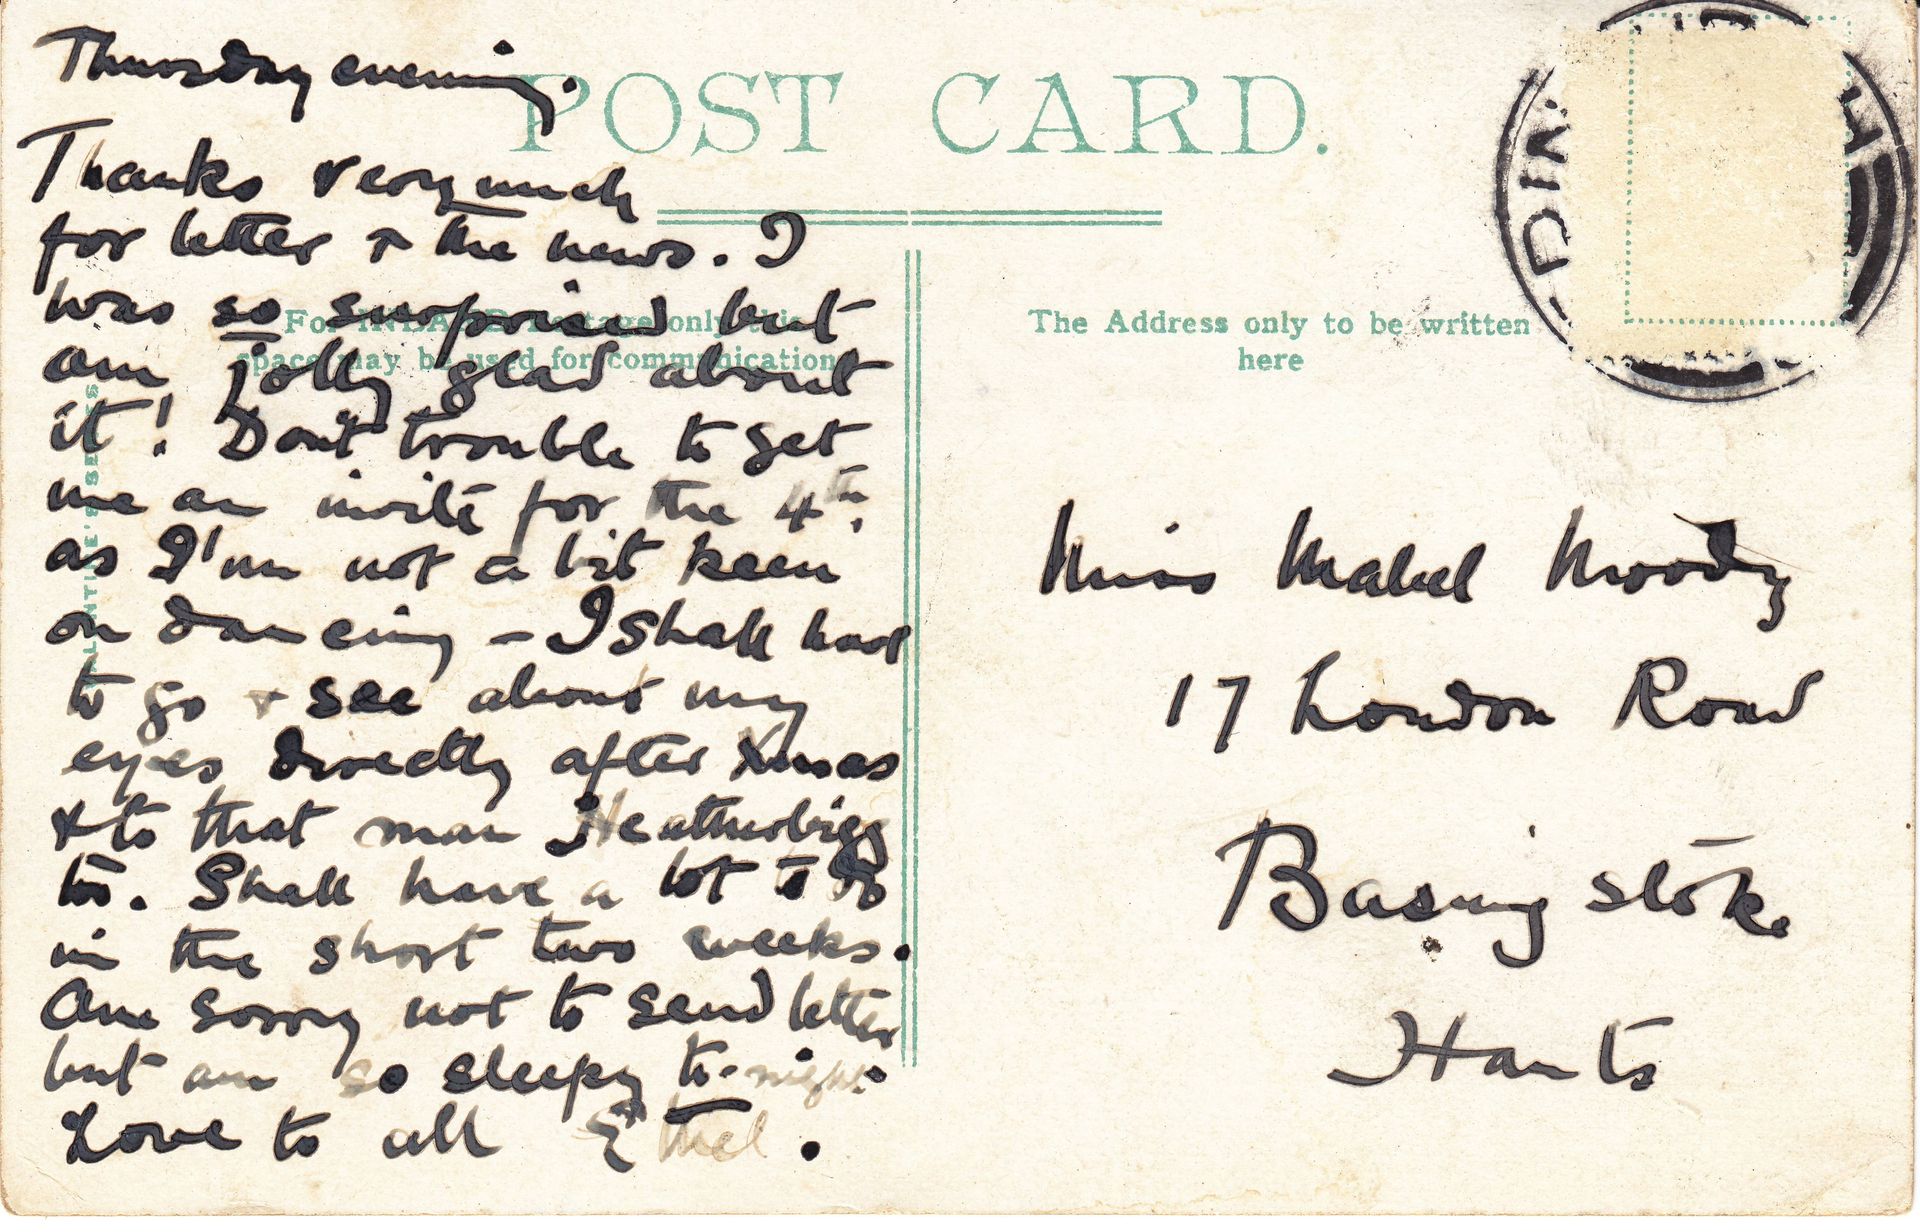 Thursday evening.
Thanks very much
for letter & the news. I
was so surprised but
am jolly glad about
it! Don't trouble to get
me an invite for the 4th.
as I'm not a bit keen
on dancing – I shall have
to go & see about my
eyes directly after Xmas
& to that man Heatherbigg
to. Shall have a lot to do
in the short two weeks.
Am sorry not to send letter
but am so sleepy to-night.
Love to all Ethel.
POST CARD.
For INLAND Postage only this
space may be used for communication
VALENTINE'S SERIES
The Address only to be written
here
Miss Mabel Moody
17 London Road
Basingstoke
Hants